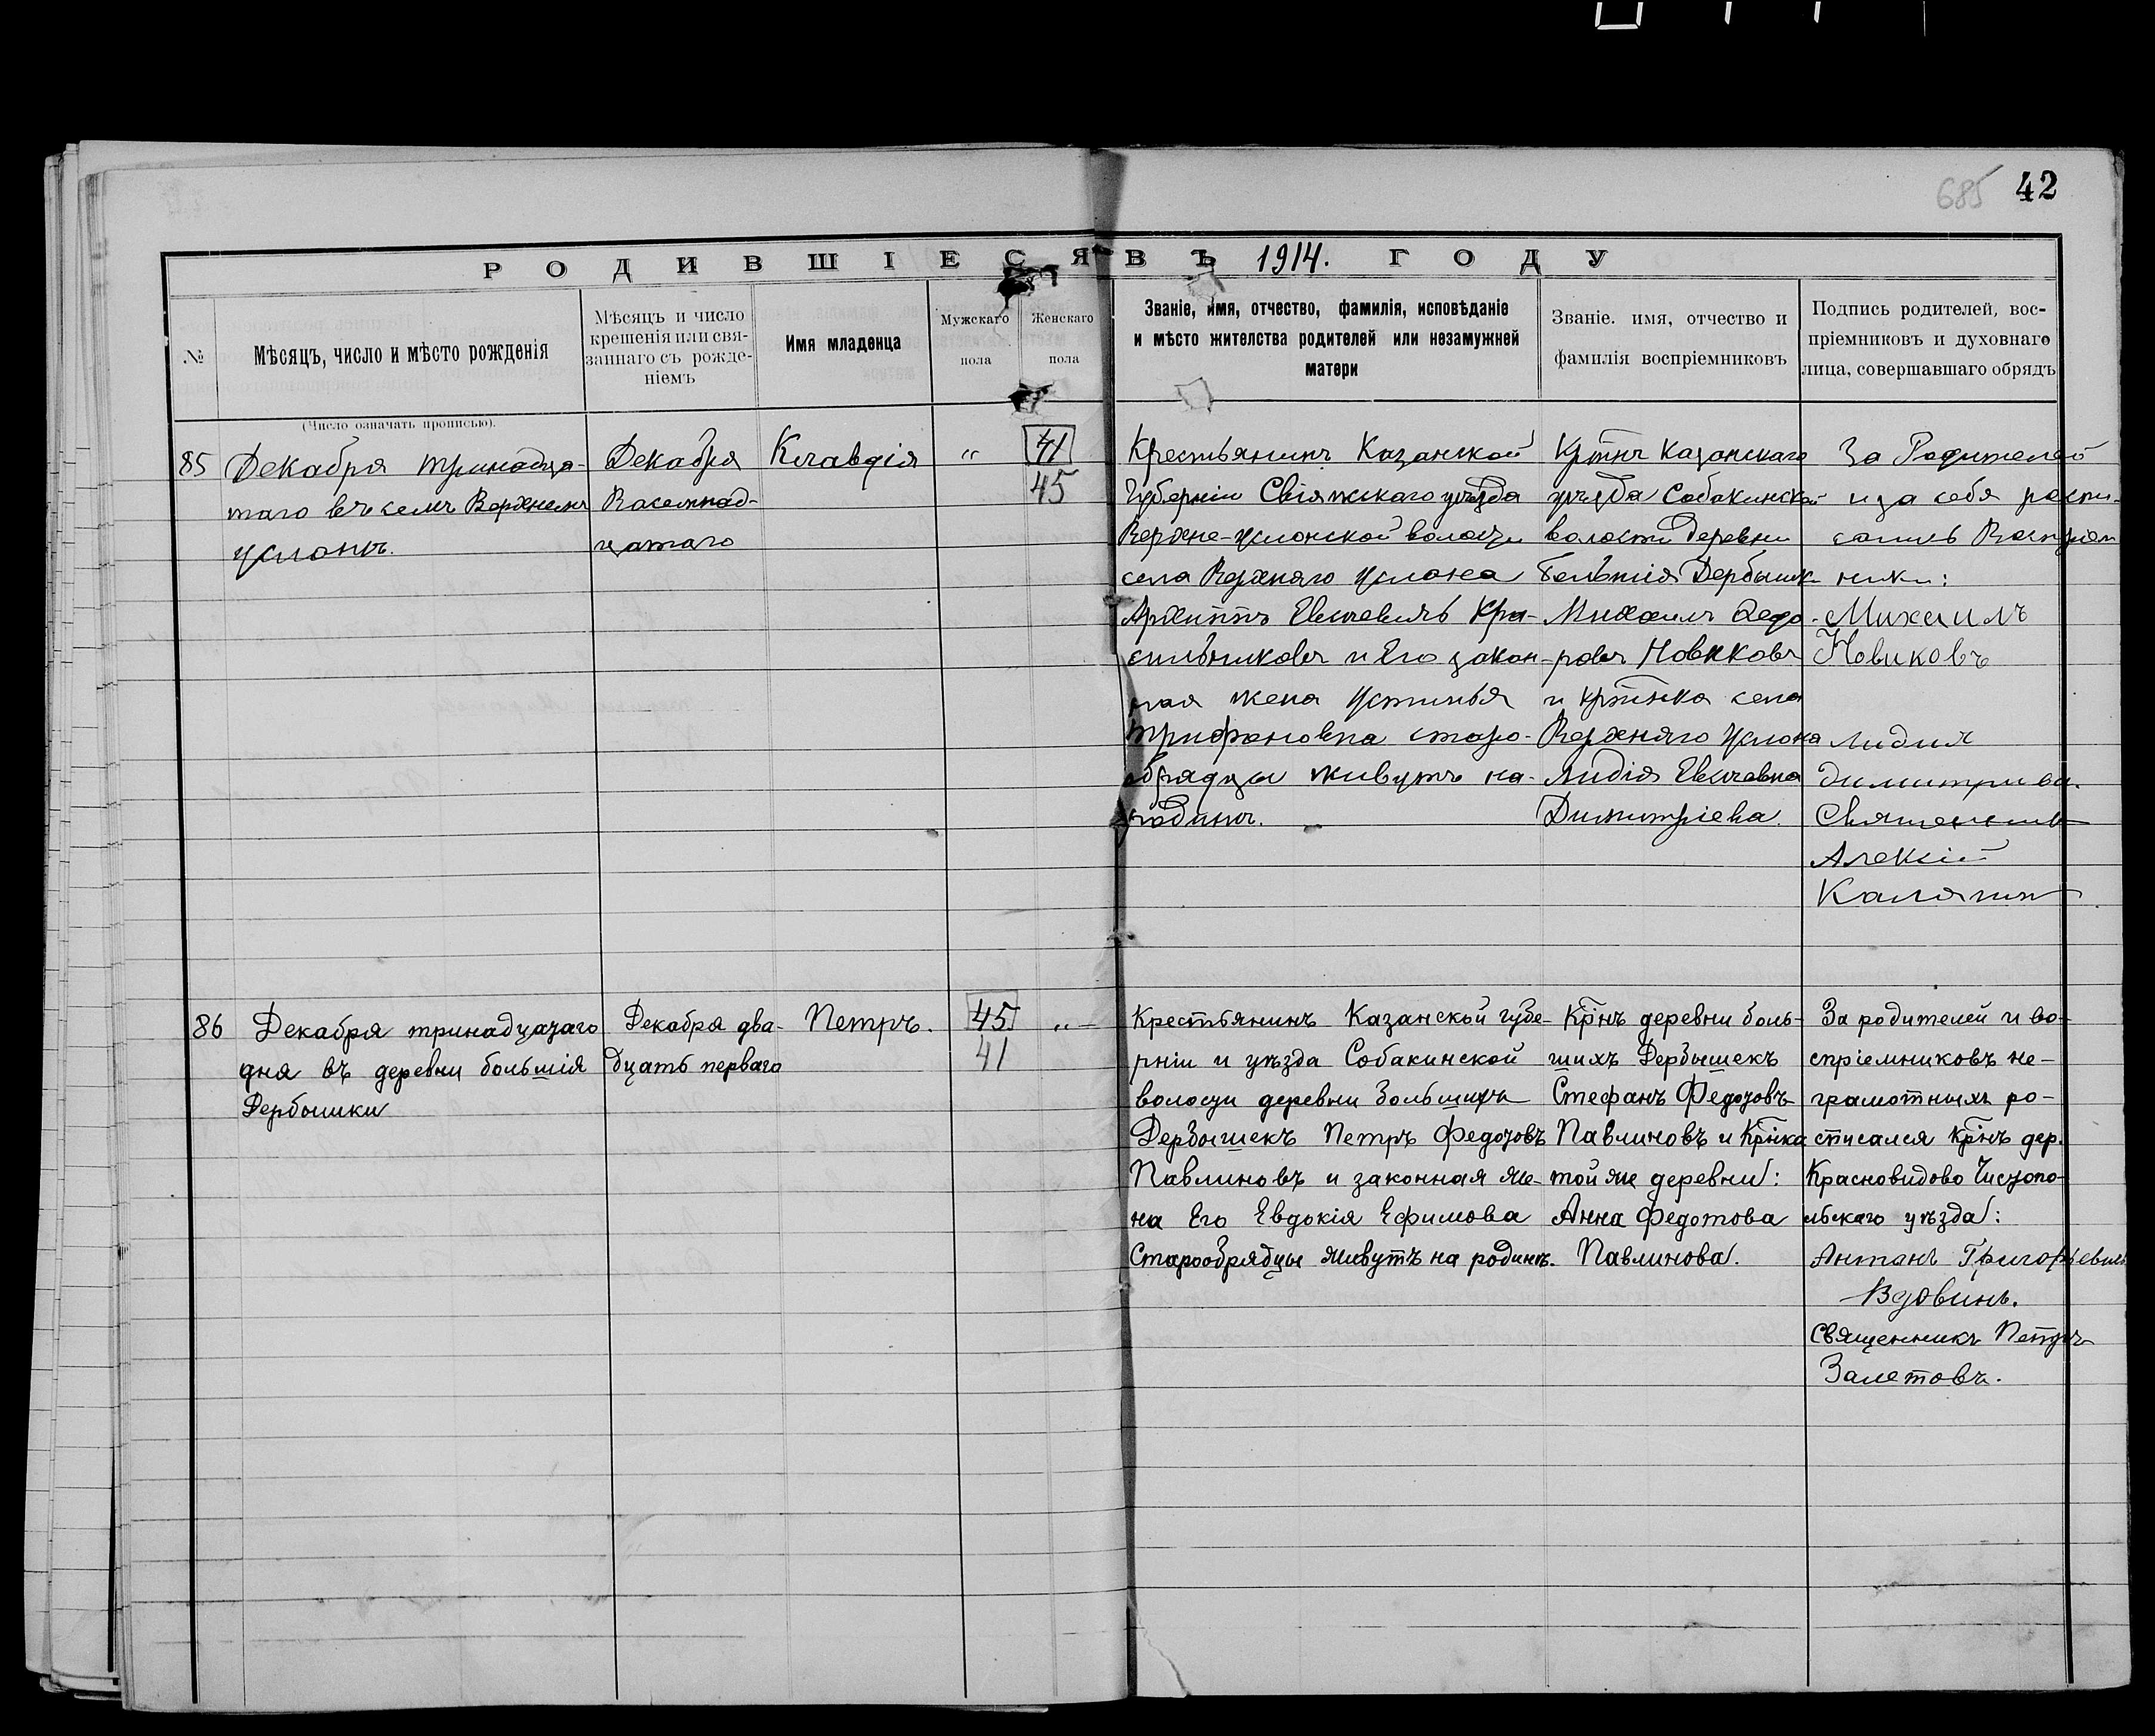 685 42
РОДИВШІЕСЯ ВЪ 1914. ГОДУ
№
Мѣсяцъ, число и мѣсто рожденія
Мѣсяцъ и число
крещенія или свя-
заннаго съ рожде-
ніемъ
Имя младенца
Мужскаго
пола
Женскаго
пола
Званіе, имя, отчество, фамилія, исповѣданіе
и мѣсто жителства родителей или незамужней
матери
Званіе. имя, отчество и
фамилія воспріемниковъ
Подпись родителей, вос-
пріемниковъ и духовнаго
лица, совершавшаго обрядъ
(Число означать прописью).
85
Декабря тринадца-
таго въ селѣ Верхнемъ
Услонѣ.
Декабря
Восемнад-
цатаго
Клавдія
"
41
45
Крестьянинъ Казанской
Губерніи Свіяжскаго уѣзда
Верхне-Услонской волости
села Верхняго Услона
Архиппъ Евлчевичъ Кра-
сильниковъ и Его закон-
ная жена Устинья
Трифоновна старо-
обрядцы живутъ на-
родинѣ.
Крт̃нъ Казанскаго
уѣзда Собакинской
волости деревни
Большія Дербышк
Михаилъ Ѳедо-
ровъ Новиковъ
и крт̃нка села
Верхняго Услона
Лидія Евлчевна
Димитріева.
За Родителей
и за себя распи-
сались Воспріем
ники:
Михаилъ
Новиковъ
Лидия
Димитриева.
Священникъ
Алексій
Калягинъ
86
Декабря тринадцатаго
дня въ деревни большія
Дербышки
Декабря два-
дцать перваго
Петръ.
45
41
"
Крестьянинъ Казанской губе-
рніи и уѣзда Собакинской
волости деревни Большихъ
Дербышекъ Петръ Федотовъ
Павлиновъ и законная же-
на Его Евдокія Ефимова
Старообрядцы живутъ на родинѣ.
Кр̃нъ деревни боль-
шихъ Дербышекъ
Стефанъ Федотовъ
Павлиновъ и Кр̃нка
той же деревни:
Анна Федотова
Павлинова.
За родителей и во-
спріемниковъ не-
грамотныхъ ро-
списался кр̃нъ дер.
Красновидово Чистопо-
льскаго уѣзда:
Антонъ Григорьевичъ
Вдовинъ.
Священникъ Петръ
Залетовъ.